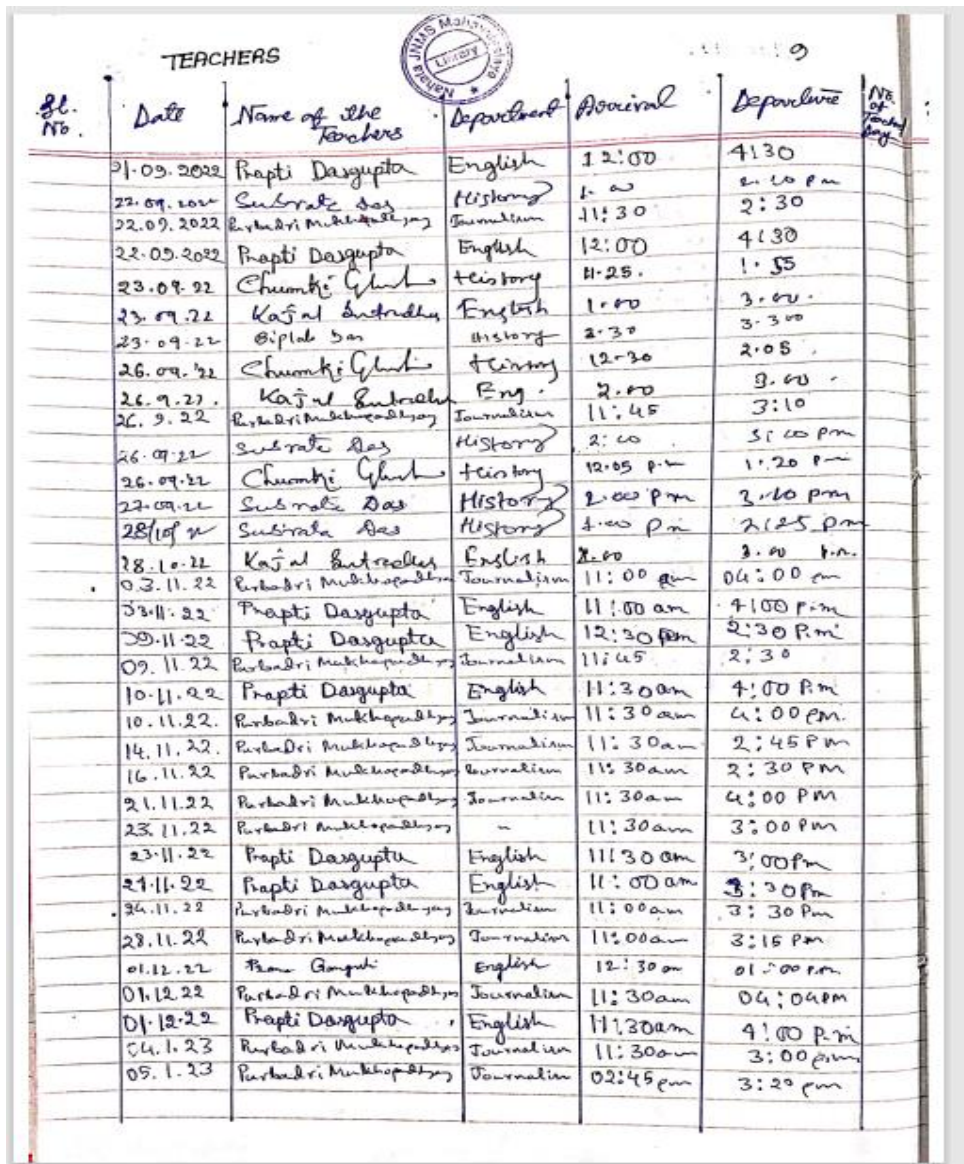 TEACHERS 9
Nahata JNMS Mahavidyalaya Library
Sl. No. Date Name of the Teachers Department Arrival Departure No. of Teaching Day
21.09.2022 Prapti Dasgupta English 12:00 4:30
22.09.2022 Subrata Das History 1.00 2.20 pm
22.09.2022 Purbadri Mukhopadhyay Journalism 11:30 2:30
22.09.2022 Prapti Dasgupta English 12:00 4:30
23.09.22 Chumki Ghosh History 11.25. 1.55
23.09.22 Kajal Sutradhar English 1.00 3.00.
23.09.22 Biplab Das History 2.30 3.30
26.09.'22 Chumki Ghosh History 12-30 2.05
26.9.22. Kajal Sutradhar Eng. 2.00 3.00.
26.9.22 Purbadri Mukhopadhyay Journalism 11:45 3:10
26.09.22 Subrata Das History 2:00 3:00 pm
26.09.22 Chumki Ghosh History 12.05 p.m 1.20 p.m
27.09.22 Subrata Das History 2.00 pm 3.10 pm
28/10/22 Subrata Das History 1.00 pm 2:25 pm
28.10.22 Kajal Sutradhar English 2.00 3.00 p.m.
03.11.22 Purbadri Mukhopadhyay Journalism 11:00 am 04:00 pm
03.11.22 Prapti Dasgupta English 11:00 am 4:00 p.m
09.11.22 Prapti Dasgupta English 12:30 pm 2:30 P.m
09.11.22 Purbadri Mukhopadhyay Journalism 11:45 2:30
10.11.22 Prapti Dasgupta English 11:30 am 4:00 P.m
10.11.22. Purbadri Mukhopadhyay Journalism 11:30 am 4:00 pm.
14.11.22. Purbadri Mukhopadhyay Journalism 11:30 am 2:45 Pm
16.11.22 Purbadri Mukhopadhyay Journalism 11:30 am 2:30 PM
21.11.22 Purbadri Mukhopadhyay Journalism 11:30 am 4:00 PM
23.11.22 Purbadri Mukhopadhyay " 11:30 am 3:00 Pm
23.11.22 Prapti Dasgupta English 11:30 am 3:00 Pm
24.11.22 Prapti Dasgupta English 11:00 am 3:30 Pm
24.11.22 Purbadri Mukhopadhyay Journalism 11:00 am 3:30 Pm
28.11.22 Purbadri Mukhopadhyay Journalism 11:00 am 3:15 Pm
01.12.22 Ganguli English 12:30 01:00 p.m.
01.12.22 Purbadri Mukhopadhyay Journalism 11:30 am 04:04 PM
01.12.22 Prapti Dasgupta English 11:30 am 4:00 P.m
04.1.23 Purbadri Mukhopadhyay Journalism 11:30 am 3:00 pm
05.1.23 Purbadri Mukhopadhyay Journalism 02:45 pm 3:20 pm